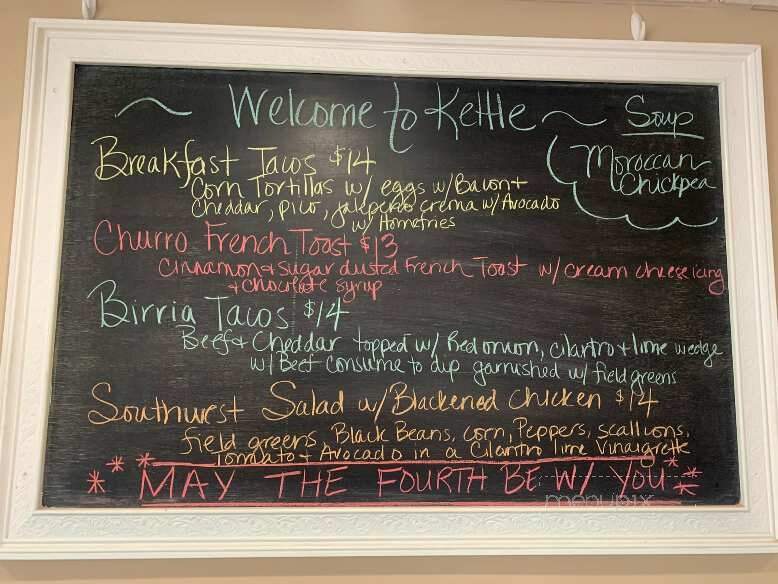 ~ Welcome to Kettle ~
Soup
Moroccan
Chickpea
Breakfast Tacos $14
Corn Tortillas w/ eggs w/ Bacon +
Cheddar, pico, jalepeño crema w/ Avocado
w/ Homefries
Churro French Toast $13
Cinnamon + sugar dusted French Toast w/ cream cheese icing
+ chocolate syrup
Birria Tacos $14
Beef + Cheddar topped w/ Red onion, cilantro + lime wedge
w/ Beef consume to dip garnished w/ field greens
Southwest Salad w/ Blackened Chicken $14
field greens, Black Beans, corn, Peppers, scallions,
Tomato + Avocado in a Cilantro lime Vinaigrette
*** MAY THE FOURTH BE W/ YOU ***
menupix